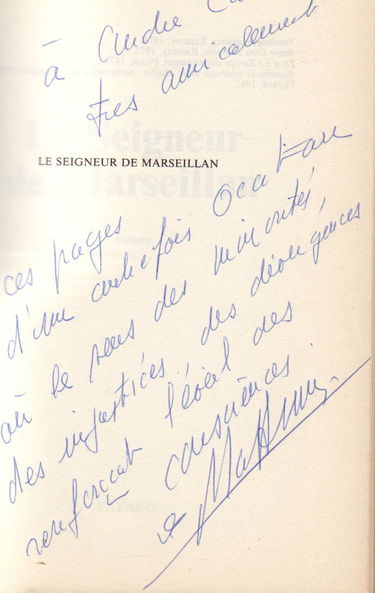 à André
très amicalement
LE SEIGNEUR DE MARSEILLAN
ces pages
d'un autrefois Occitan
où le sens des minorités,
des injustices, des
renforçait l'éveil des
consciences.